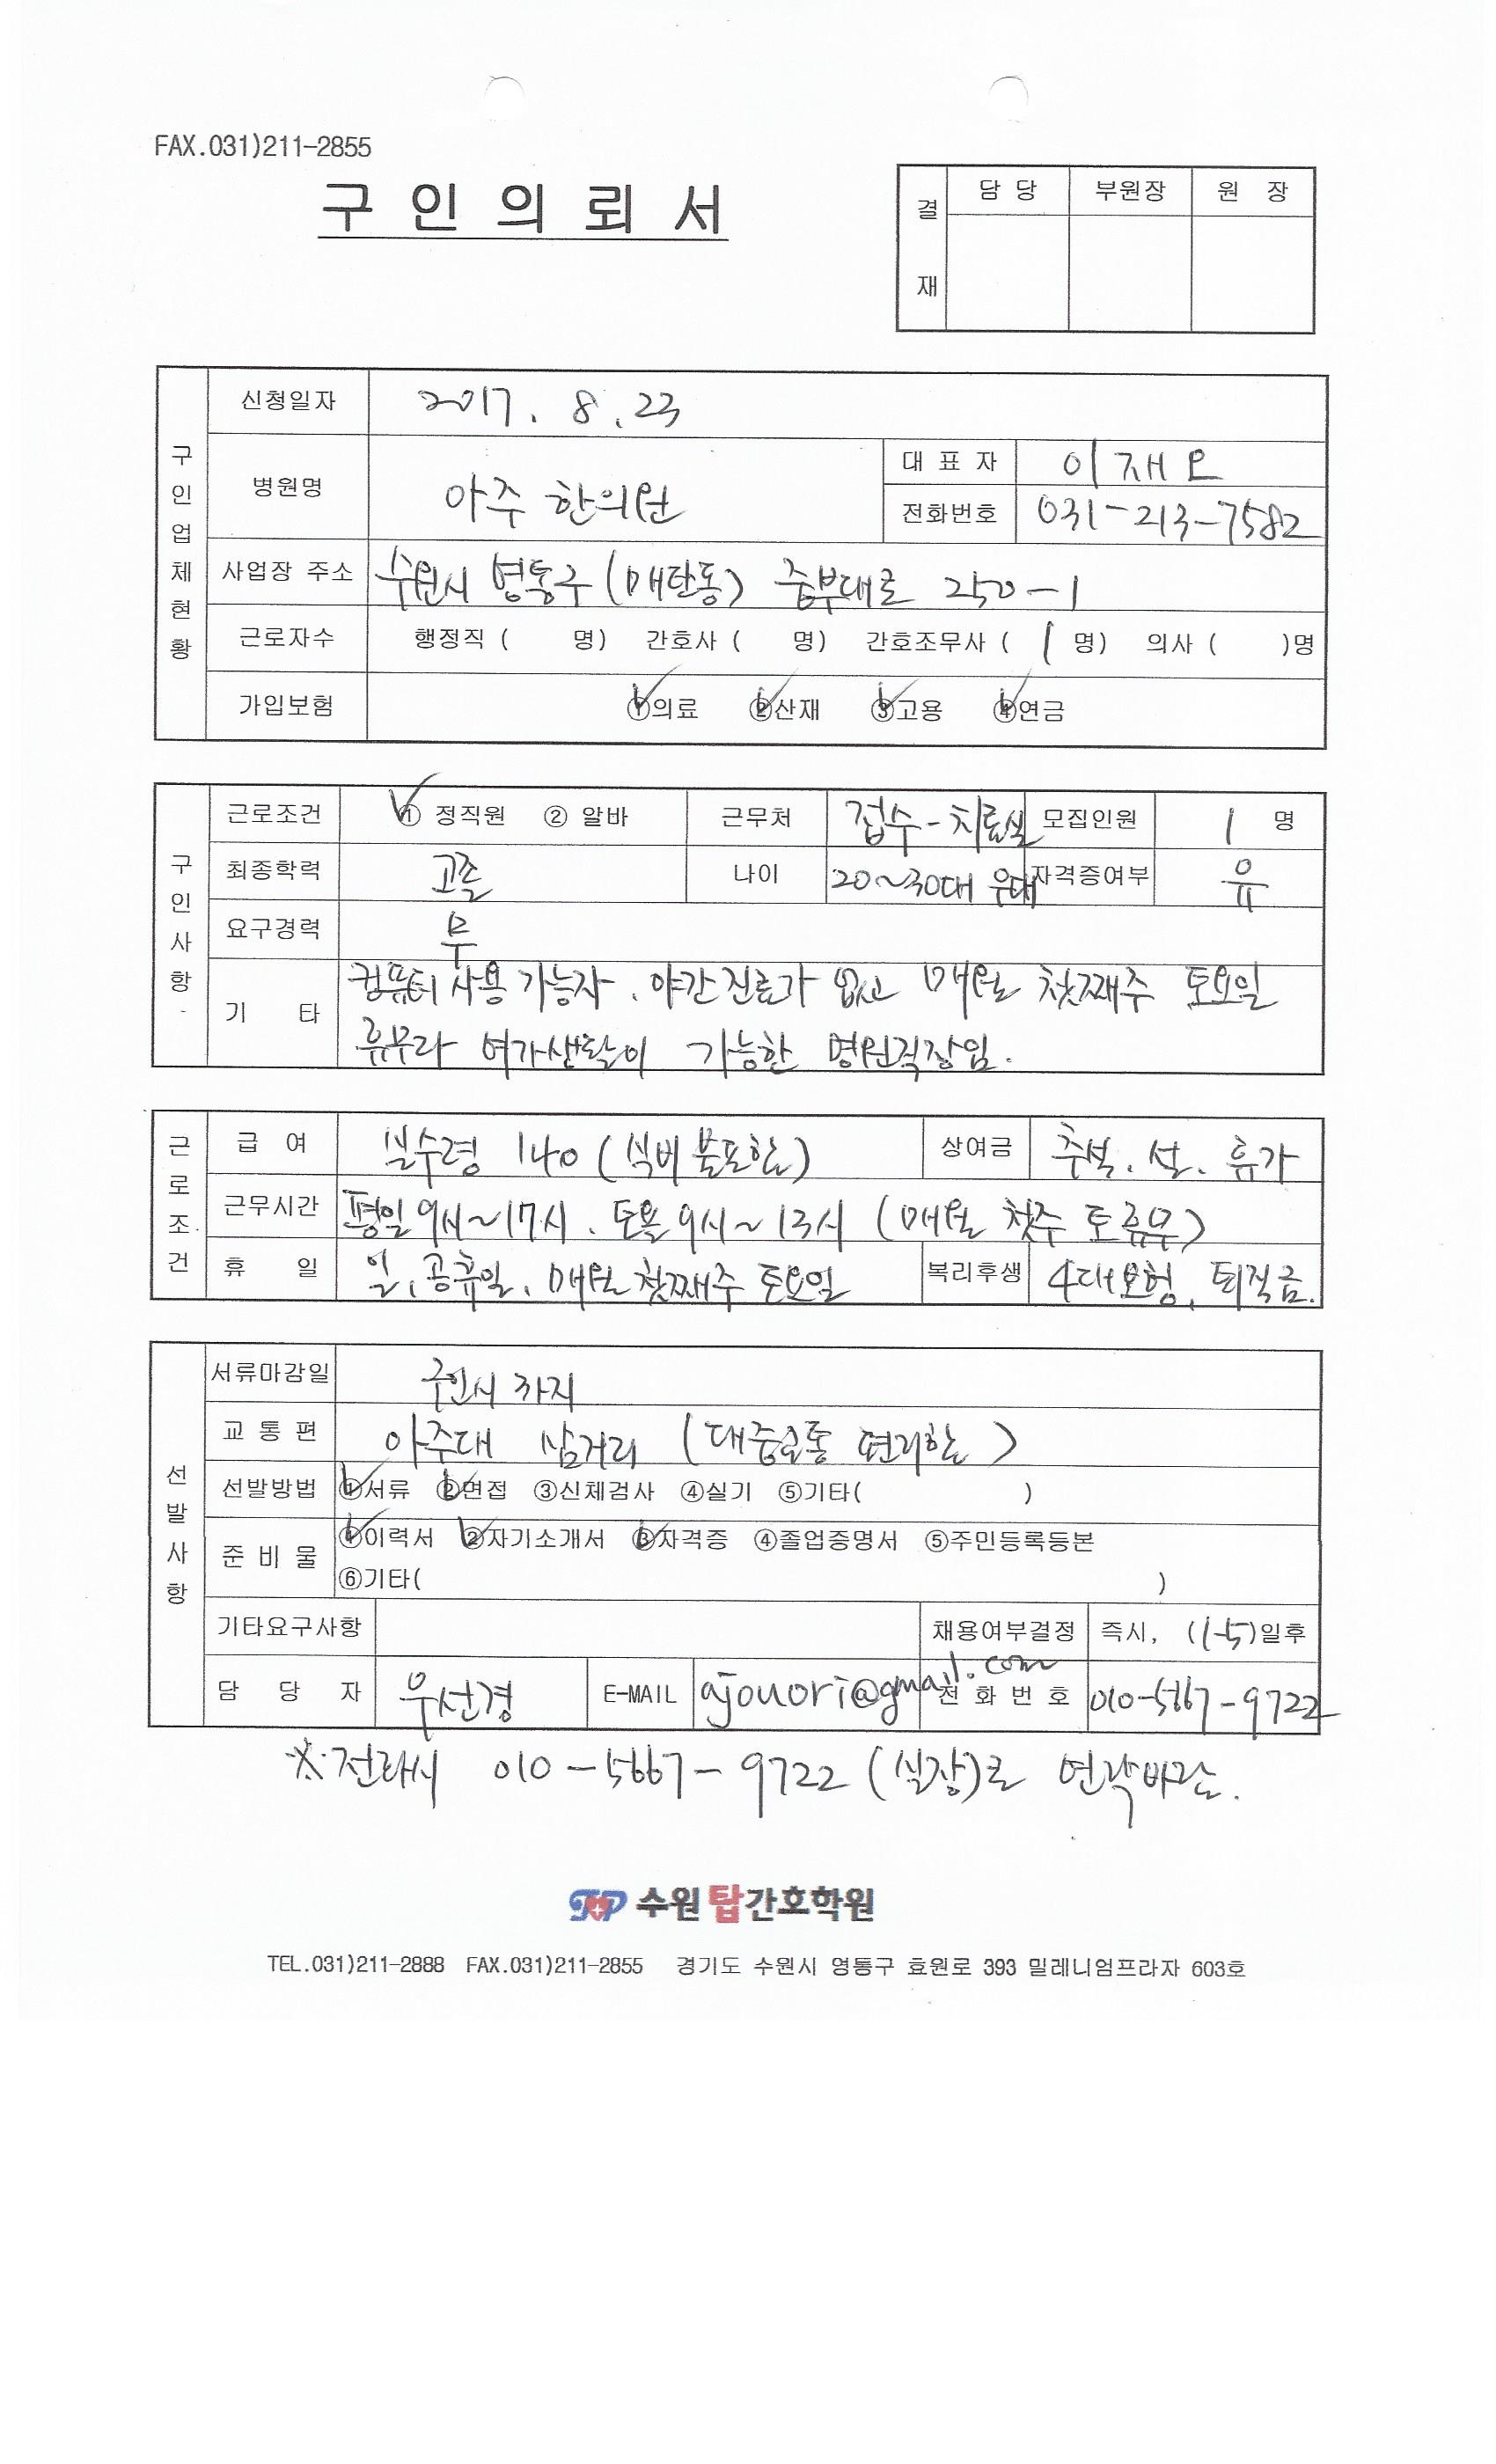 FAX.031)211-2855
구 인 의 뢰 서
결 재
담 당 부원장 원 장
구인업체현황
신청일자 2017. 8. 23
병원명 아주 한의원
대 표 자 이재
전화번호 031-213-7582
사업장 주소 수원시 영통구 (매탄동) 중부대로 250-1
근로자수 행정직 ( 명) 간호사 ( 명) 간호조무사 ( 1 명) 의사 ( )명
가입보험 ①의료 ②산재 ③고용 ④연금
구인사항
근로조건 ① 정직원 ② 알바 근무처 접수-치료실 모집인원 1 명
최종학력 고졸 나이 20~30대 우대 자격증여부 유
요구경력 무
기 타 컴퓨터 사용 가능자. 야간진료가 없고 매월 첫째주 토요일
휴무라 여가생활이 가능한 병원직장임.
근로조건
급 여 실수령 140 (식비 불포함) 상여금 추석. 설. 휴가
근무시간 평일 9시~17시. 토욜 9시~13시 (매월 첫주 토 휴무)
휴 일 일, 공휴일, 매월 첫째주 토요일 복리후생 4대보험, 퇴직금.
선발사항
서류마감일 구인시 까지
교 통 편 아주대 삼거리 (대중교통 편리함)
선발방법 ①서류 ②면접 ③신체검사 ④실기 ⑤기타( )
준 비 물 ①이력서 ②자기소개서 ③자격증 ④졸업증명서 ⑤주민등록등본
⑥기타( )
기타요구사항 채용여부결정 즉시, (1-5)일후
담 당 자 우선경 E-MAIL ajouori@gmail.com 전 화 번 호 010-5667-9722
※전화시 010-5667-9722 (실장)로 연락바람.
TOP 수원탑간호학원
TEL.031)211-2888 FAX.031)211-2855 경기도 수원시 영통구 효원로 393 밀레니엄프라자 603호